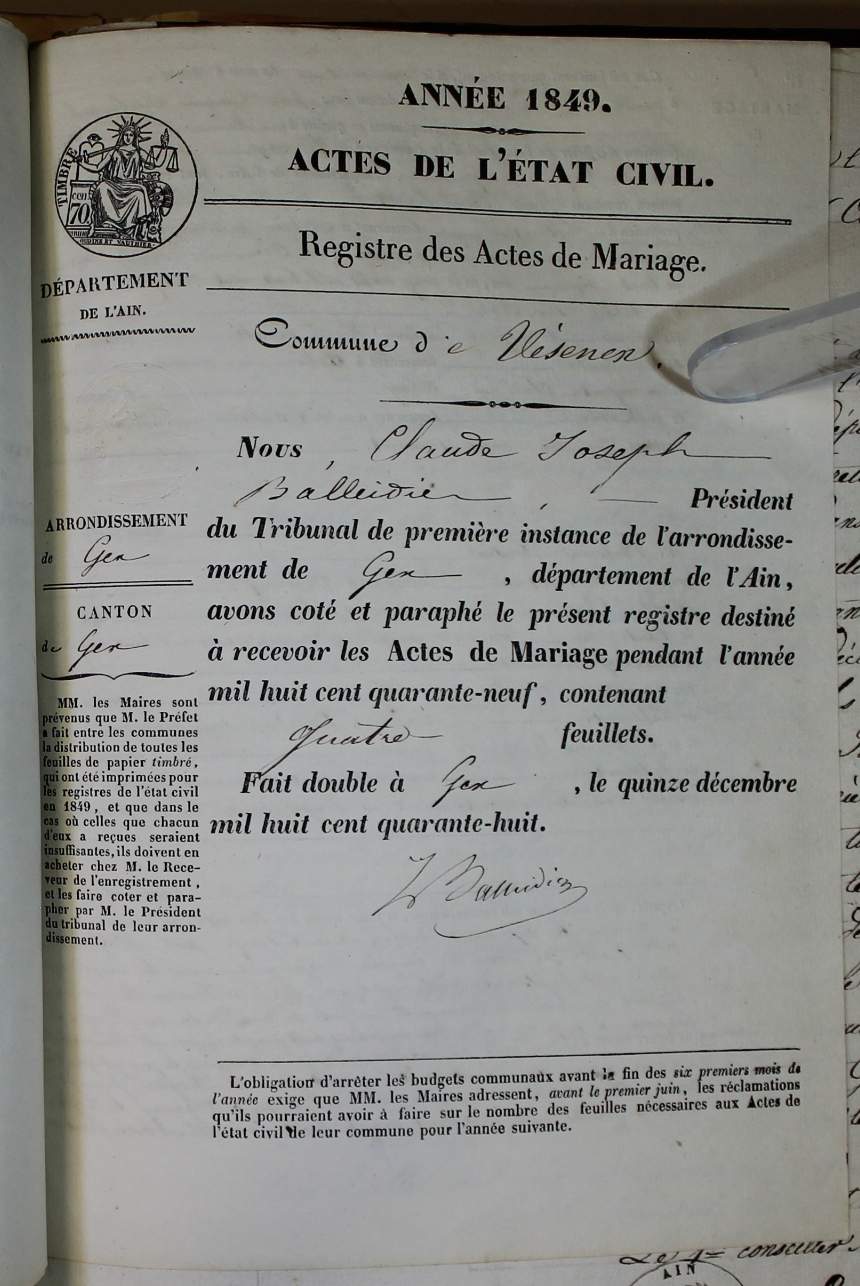 ANNÉE 1849.
ACTES DE L'ÉTAT CIVIL.
Registre des Actes de Mariage.
TIMBRE
cen
70
DÉPARTEMENT
DE L'AIN.
Commune de Vésenex.
Nous, Claude Joseph
Balleidier, Président
du Tribunal de première instance de l'arrondisse-
ment de Gex, département de l'Ain,
avons coté et paraphé le présent registre destiné
à recevoir les Actes de Mariage pendant l'année
mil huit cent quarante-neuf, contenant
quatre feuillets.
Fait double à Gex, le quinze décembre
mil huit cent quarante-huit.
Balleidier
ARRONDISSEMENT
de Gex
CANTON
de Gex
MM. les Maires sont
prévenus que M. le Préfet
a fait entre les communes
la distribution de toutes les
feuilles de papier timbré,
qui ont été imprimées pour
les registres de l'état civil
en 1849, et que dans le
cas où celles que chacun
d'eux a reçues seraient
insuffisantes, ils doivent en
acheter chez M. le Rece-
veur de l'enregistrement,
et les faire coter et para-
pher par M. le Président
du tribunal de leur arron-
dissement.
L'obligation d'arrêter les budgets communaux avant la fin des six premiers mois de
l'année exige que MM. les Maires adressent, avant le premier juin, les réclamations
qu'ils pourraient avoir à faire sur le nombre des feuilles nécessaires aux Actes de
l'état civil de leur commune pour l'année suivante.
AIN